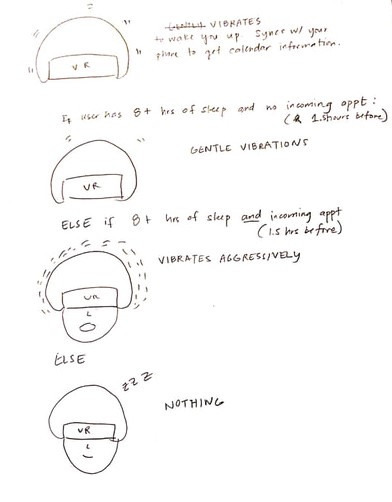 GENTLY VIBRATES
to wake you up Syncs w/ your
phone to get calendar information.
VR
If user has 8+ hrs of sleep and no incoming appt:
(& 1.5hours before)
GENTLE VIBRATIONS
VR
ELSE if 8+ hrs of sleep and incoming appt
(1.5 hrs before)
VIBRATES AGGRESSIVELY
VR
ELSE
ZZZ
NOTHING
VR